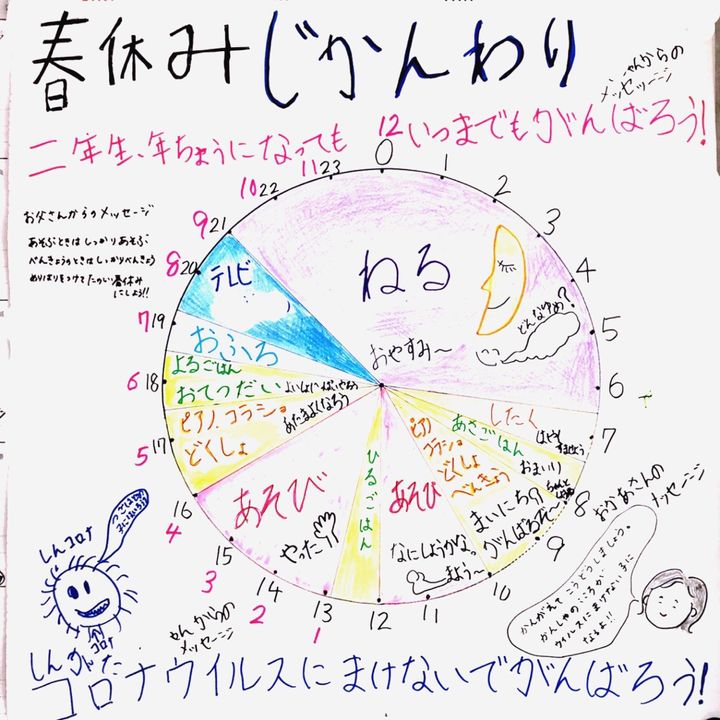 春休みじかんわり
ゃんからの
メッセージ
二年生、年ちょうになっても
いつまでもがんばろう!
お父さんからのメッセージ
あそぶときはしっかりあそぶ
べんきょうのときはしっかりべんきょう
めりはりをつけてたのしい春休み
にしよう!!
0
1
2
3
4
5
6
7
8
9
10
11
12
13 1
14 2
15 3
16 4
17 5
18 6
19 7
20 8
21 9
22 10
23 11
12
ねる
おやすみ~
どんなゆめ?
したく
はやく
すませよう
あさごはん
おまいり
ピアノ
コラショ
どくしょ
べんきょう
まいにちの
がんばるぞ~
あそび
なにしようかな。
まよう~
ひるごはん
あそび
やったー
ピアノ、コラショ
どくしょ
あたまよくなろう
よるごはん
おてつだい
おふろ
テレビ
おかあさんの
メッセージ
かんがえて こうどうしましょう。
かんしゃの こころが
ウイルスに まけない 力に
なるよ!!
しんコロナ
コロナ
ゃんからの
メッセージ
しんがた
コロナウイルスにまけないでがんばろう!